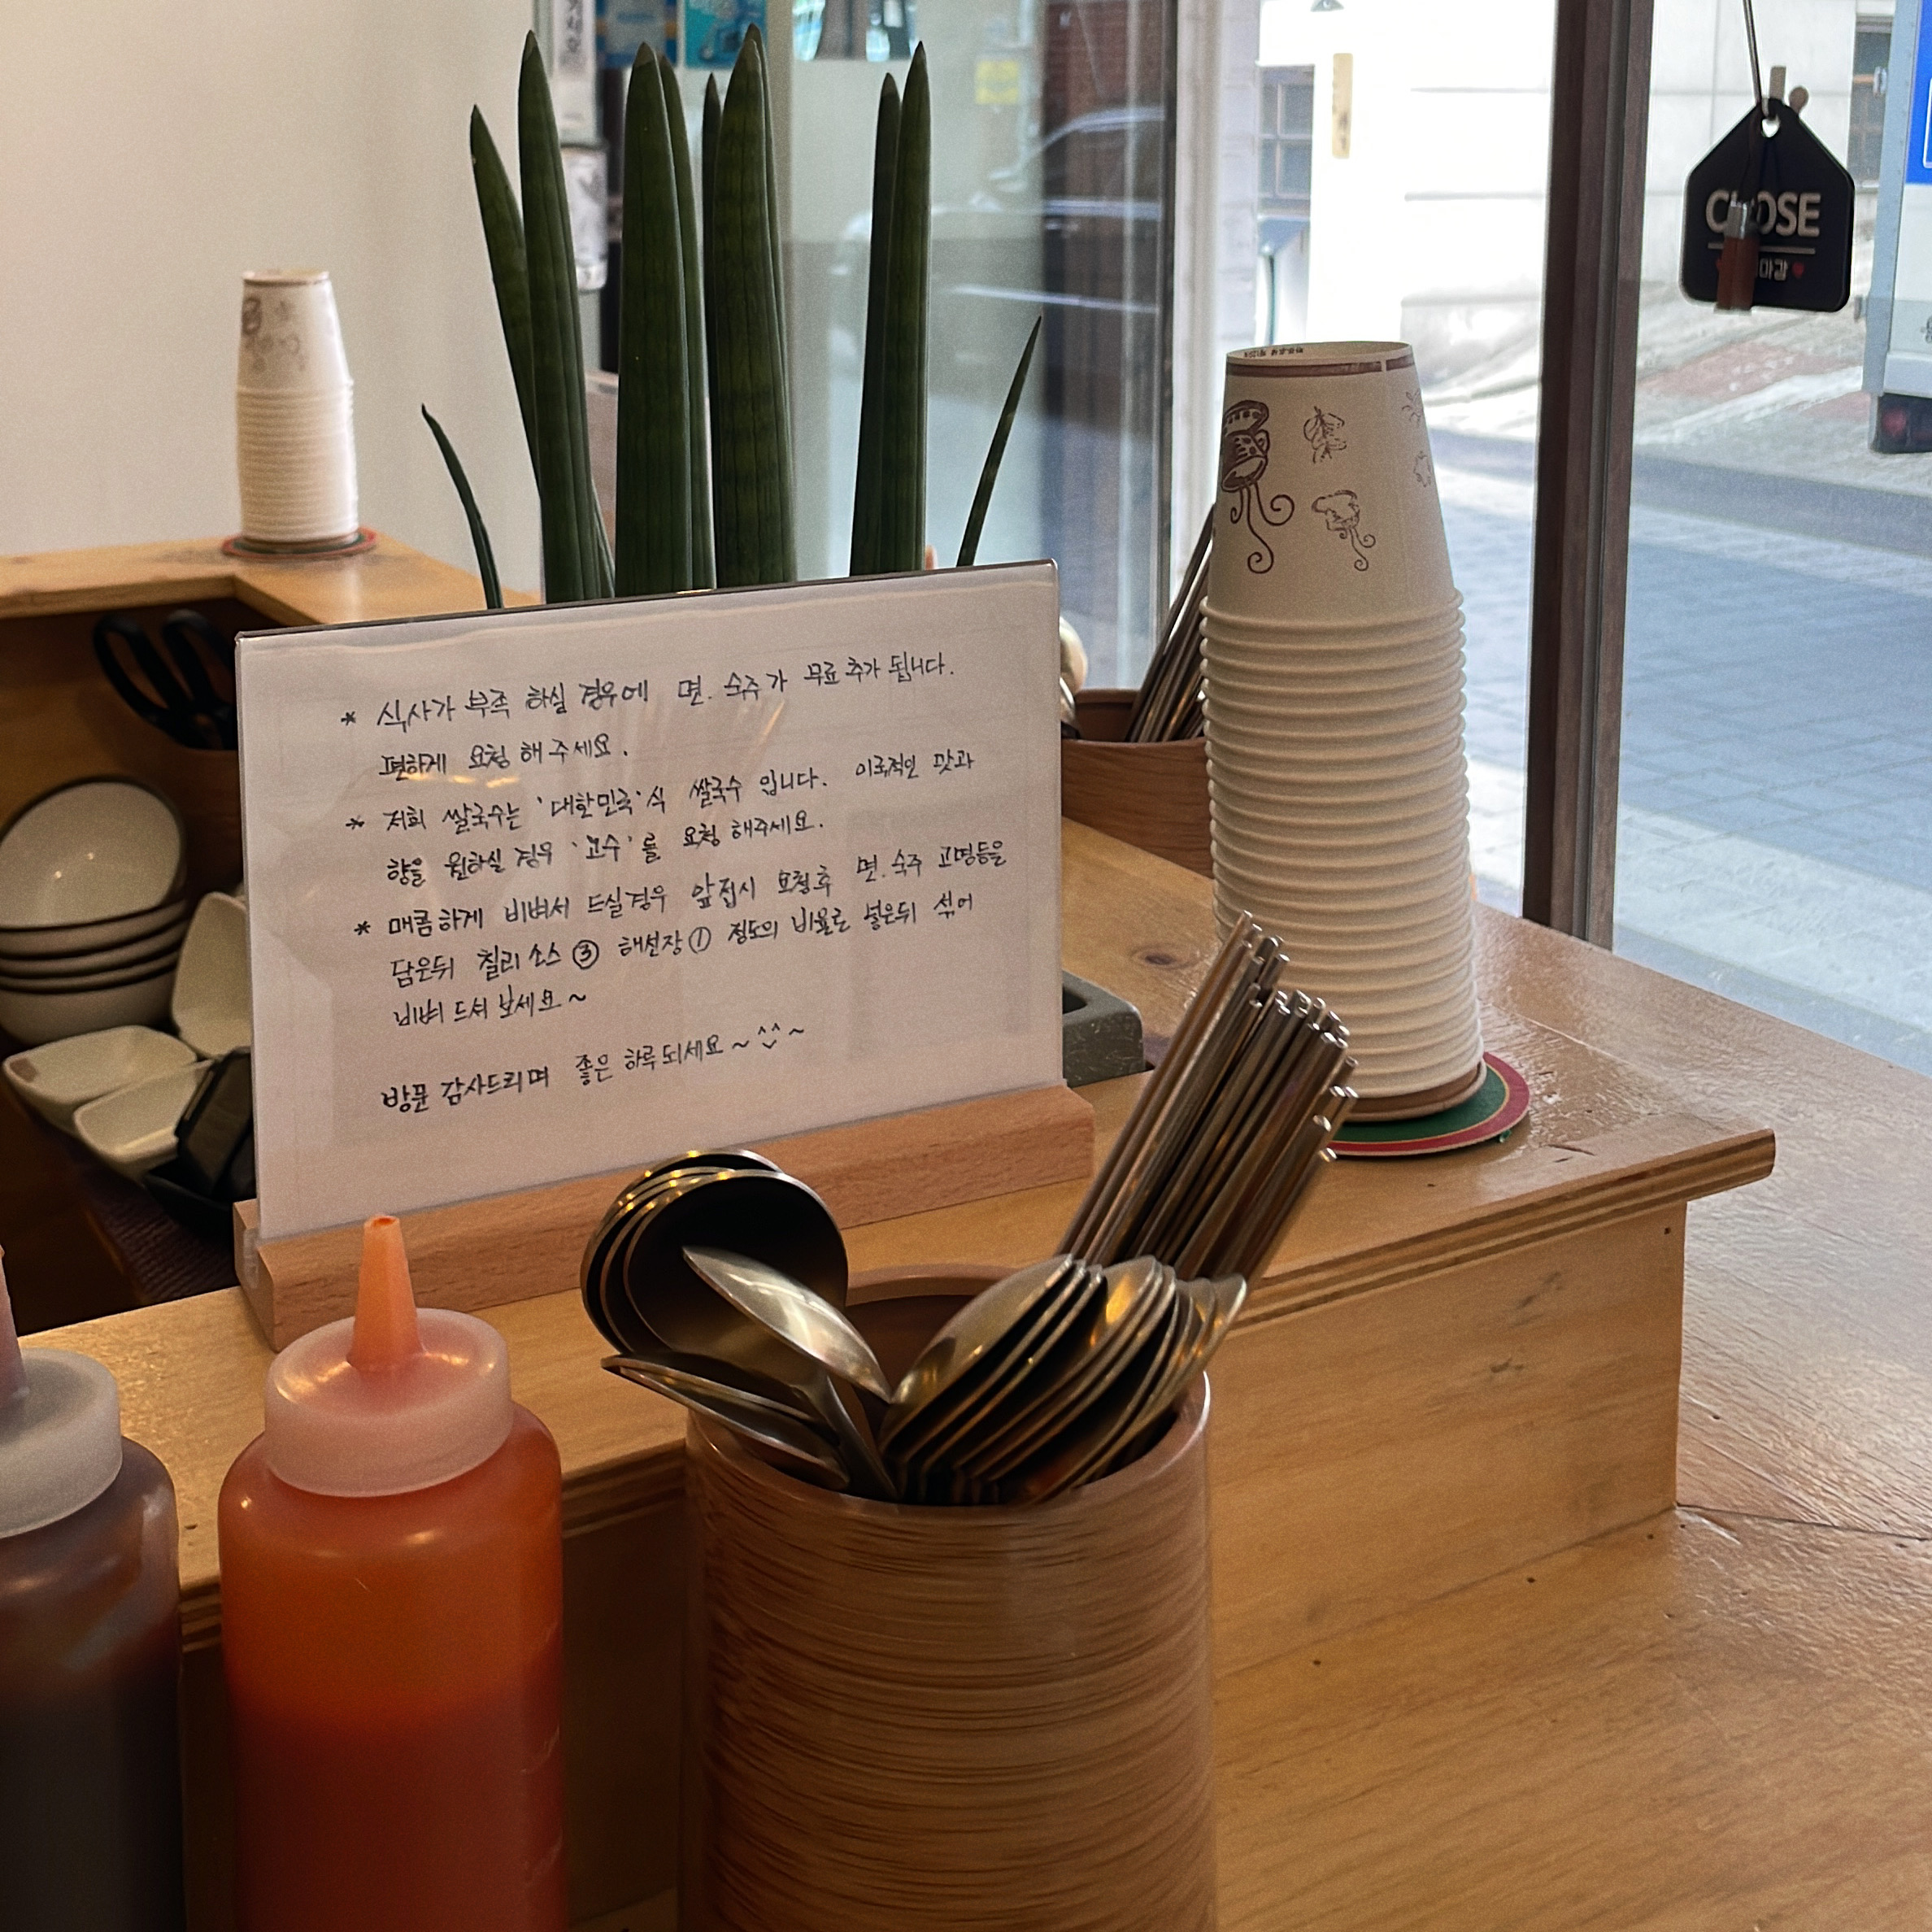 CLOSE
마감
* 식사가 부족 하실 경우에 면. 숙주가 무료 추가 됩니다.
편하게 요청 해 주세요.
* 저희 쌀국수는 '대한민국'식 쌀국수 입니다. 이국적인 맛과
향을 원하실 경우 '고수'를 요청 해주세요.
* 매콤하게 비벼서 드실경우 앞접시 요청후 면.숙주 고명등을
담은뒤 칠리 소스 ③ 해선장 ① 정도의 비율로 넣은뒤 섞어
비벼 드셔 보세요~
방문 감사드리며 좋은 하루 되세요~^^~